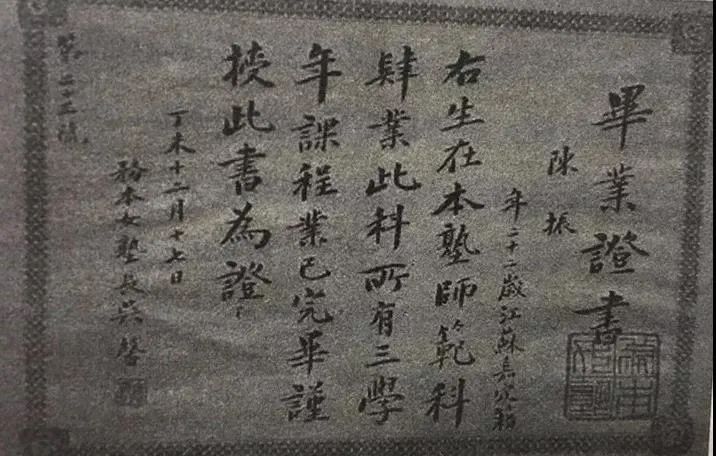 畢業證書
陳振
年二十二歲江蘇嘉定籍
右生在本塾師範科
肄業此科所有三學
年課程業已完畢謹
授此書為證
丁未十二月十七日
務本女塾長吳馨
第二十三號